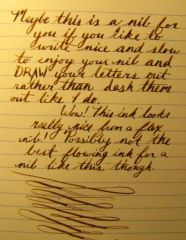 Maybe this is a nib for
you if you like to
write nice and slow
to enjoy your nib and
DRAW your letters out
rather than dash them
out like I do.
Wow! This ink looks
really nice from a flex
nib! Possibly not the
best flowing ink for a
nib like this, though.